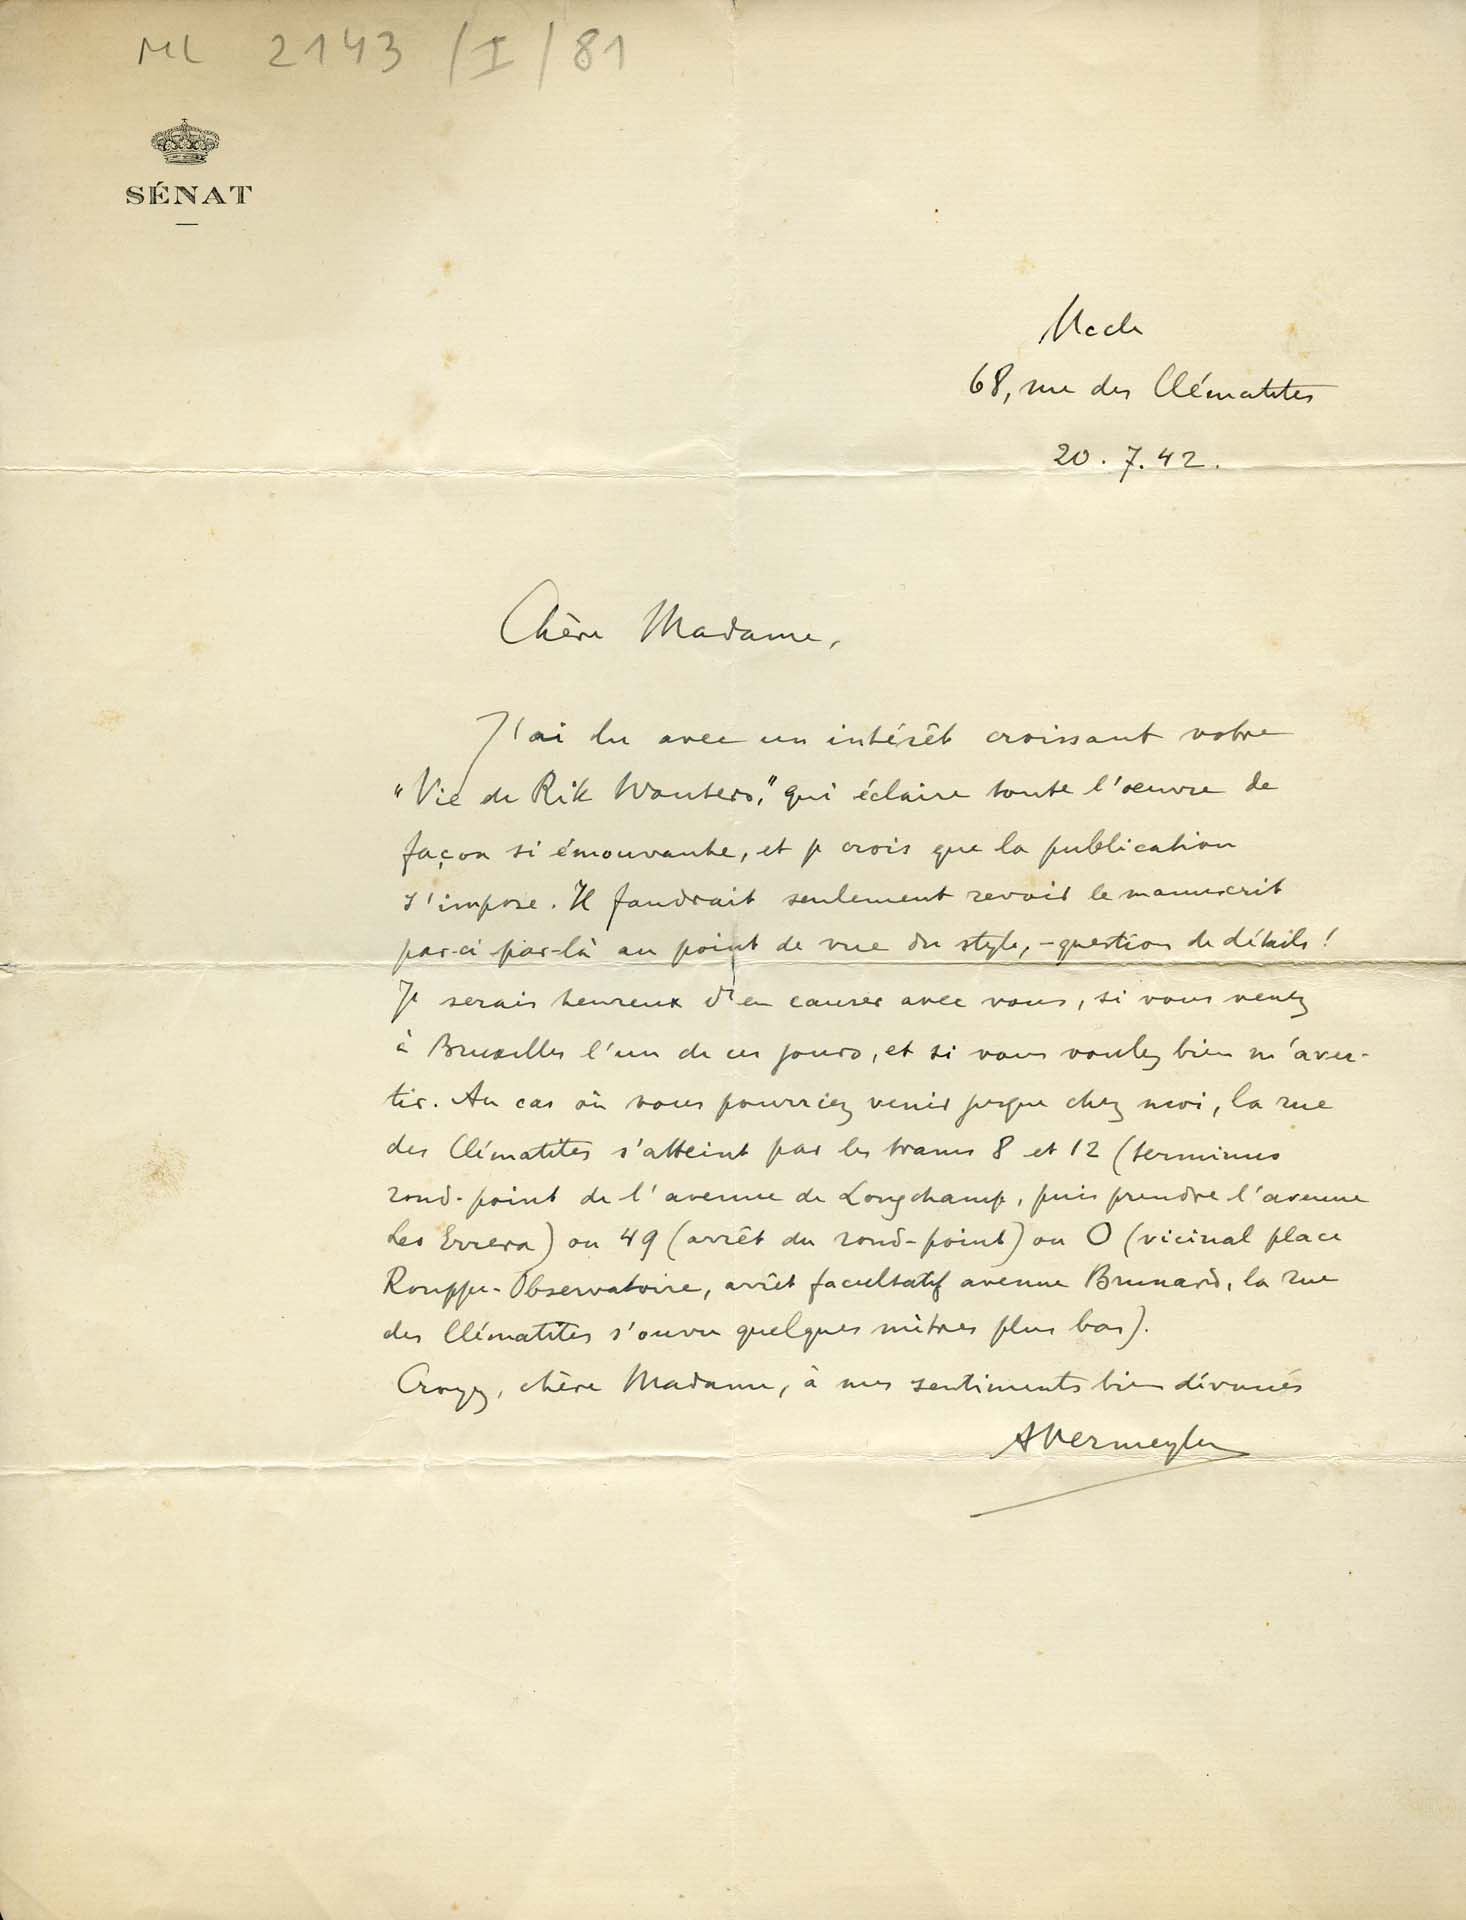 ML 2143/I/81
SÉNAT
Uccle
68, rue des Clématites
20.7.42.
Chère Madame,
J'ai lu avec un intérêt croissant votre
"Vie de Rik Wouters," qui éclaire toute l'oeuvre de
façon si émouvante, et je crois que la publication
s'impose. Il faudrait seulement revoir le manuscrit
par-ci par-là au point de vue du style, - question de détails!
Je serais heureux d'en causer avec vous, si vous venez
à Bruxelles l'un de ces jours, et si vous voulez bien m'aver-
tir. Au cas où vous pourriez venir jusque chez moi, la rue
des Clématites s'atteint par les trams 8 et 12 (terminus
rond-point de l'avenue de Longchamp, puis prendre l'avenue
Léo Errera) ou 49 (arrêt du rond-point) ou O (vicinal place
Rouppe-Observatoire, arrêt facultatif avenue Brunard, la rue
des Clématites s'ouvre quelques mètres plus bas).
Croyez, chère Madame, à mes sentiments bien dévoués
AVermeylen